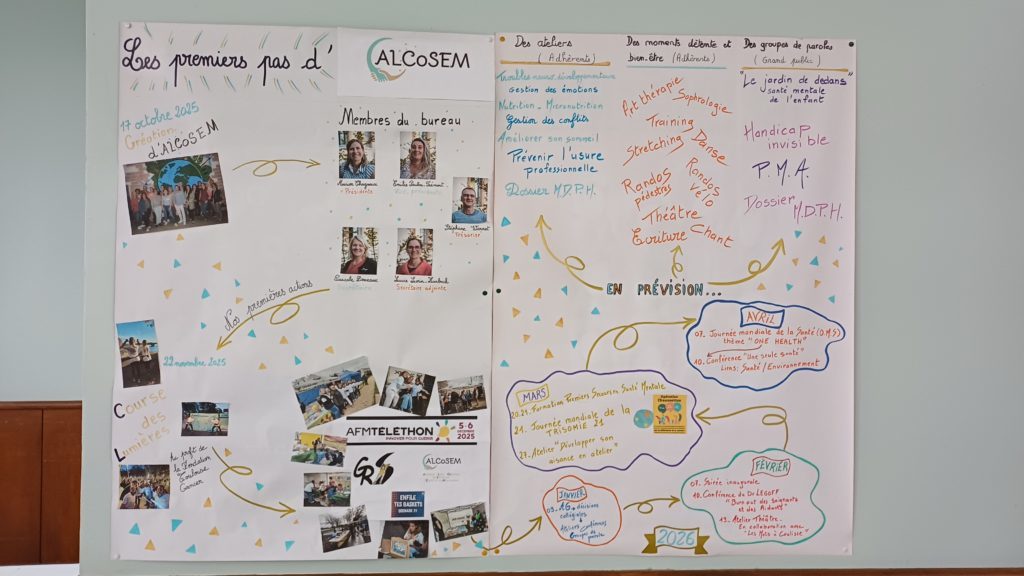 Les premiers pas d'
ALCoSEM
17 octobre 2025
Création
d'AlCoSEM
Membres du bureau
Présidente
Trésorier
Secrétaire
Secrétaire adjointe
Nos premières actions
22 novembre 2025
Course
des
Lumières
Au profit de
la Fondation
Toulouse
Cancer
AFMTÉLÉTHON
INNOVER POUR GUÉRIR
5-6
DÉCEMBRE
2025
GR
ALCoSEM
ENFILE
TES BASKETS
Des ateliers
(Adhérents)
Troubles neuro-développementaux
Gestion des émotions
Nutrition - Micronutrition
Gestion des conflits
Améliorer son sommeil
Prévenir l'usure
professionnelle
Dossier M.D.P.H.
Des moments détente et
bien-être (Adhérents)
Art thérapie
Sophrologie
Training
Stretching
Danse
Randos
pédestres
Randos
vélo
Théâtre
Ecriture
Chant
Des groupes de paroles
(Grand public)
"Le jardin de dedans"
santé mentale
de l'enfant
Handicap
invisible
P.M.A.
Dossier
M.D.P.H.
EN PRÉVISION...
AVRIL
07. Journée mondiale de la Santé (O.M.S)
thème "ONE HEALTH"
10. Conférence "Une seule santé"
Liens: Santé/Environnement
MARS
20.21. Formation Premiers Secours Santé Mentale
21. Journée mondiale de la
TRISOMIE 21
27. Atelier "Développer son
aisance en atelier"
FÉVRIER
07. Soirée inaugurale
10. Conférence du Dr LEGOFF
"Burn out des soignants
et des Aidants"
19. Atelier Théâtre
En collaboration avec
"Les Mots à Coulisse"
JANVIER
09. AG. décisions
collégiales
Ateliers Conférences
Groupes de
parole
2026